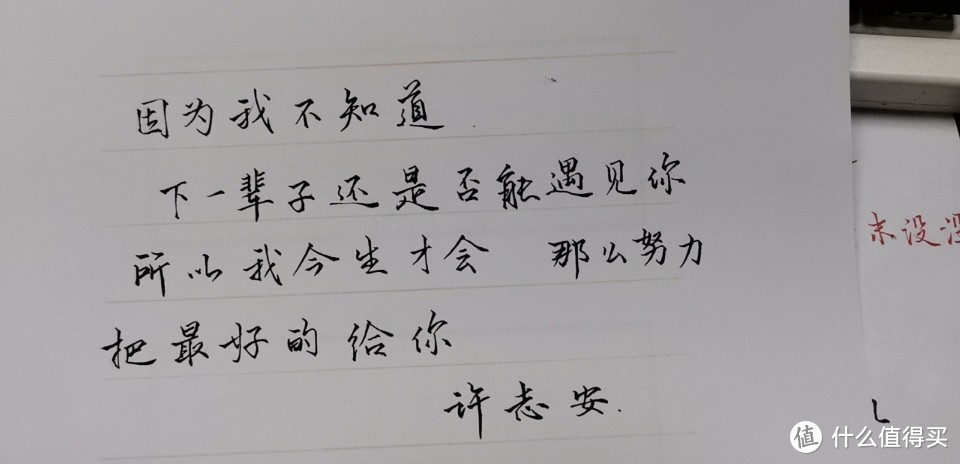 因为我不知道
下一辈子还是否能遇见你
所以我今生才会 那么努力
把最好的给你
许志安.
末没没
值 什么值得买